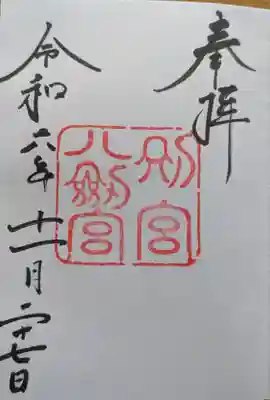 奉拝
別宮
八劔宮
令和六年十一月二十七日